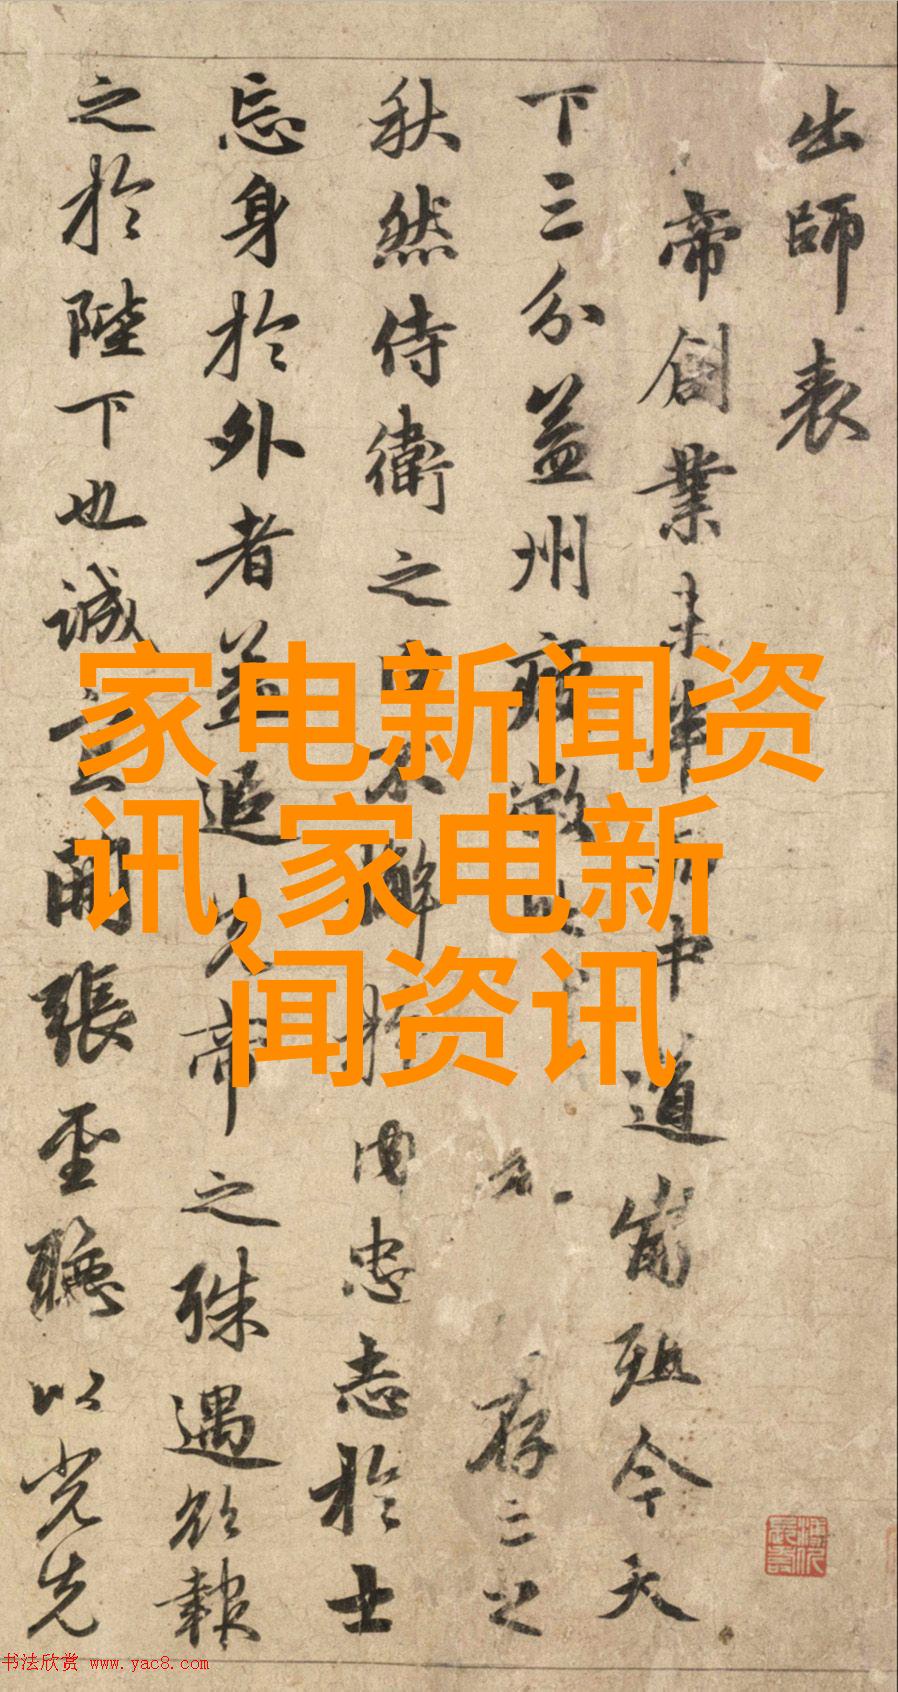 出師表
帝創業未半而中道崩殂今天
下三分益州疲敝存之
秋然侍衛之臣不懈於内忠志於士
忘身於外者蓋追先帝之殊遇欲報
之於陛下也誠宜開張聖聽以光先
家电新闻资
讯,家电新
闻资讯
书法欣赏 www.yac8.com